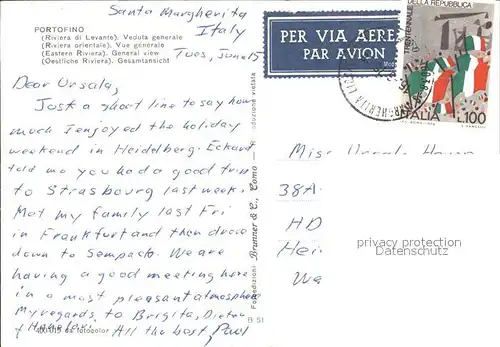 PORTOFINO
(Riviera di Levante). Veduta generale
(Riviera orientale). Vue générale
(Eastern Riviera). General view
(Oestliche Riviera). Gesamtansicht
Santa Margherita
Italy
Tues, June 15
Dear Ursala,
Just a short line to say how
much I enjoyed the holiday
weekend in Heidelberg. Eckart
told me you had a good trip
to Strasbourg last week.
Met my family last Fri
in Frankfurt and then drove
down to Sempach. We are
having a good meeting here
in a most pleasant atmosphere
My regards to Brigita, Dieter
All the best, Paul
fotocolor
Fotoedizioni Brunner & C., Como
riproduzione vietata
B 51
PER VIA AEREA
PAR AVION
DELLA REPUBBLICA
ITALIA L.100
Miss
38A
HD
Hei
We
privacy protection
Datenschutz